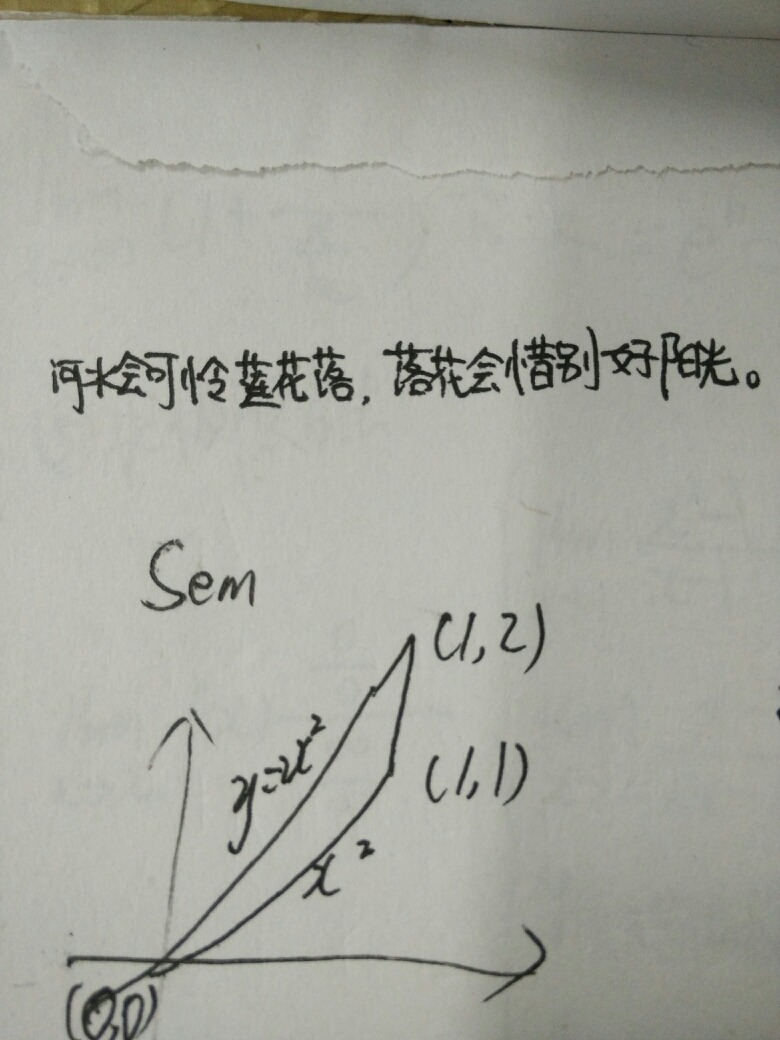 河水会可怜莲花落，落花会惜别好阳光。
Sem
(1,2)
y=2x²
(1,1)
x²
(0,0)